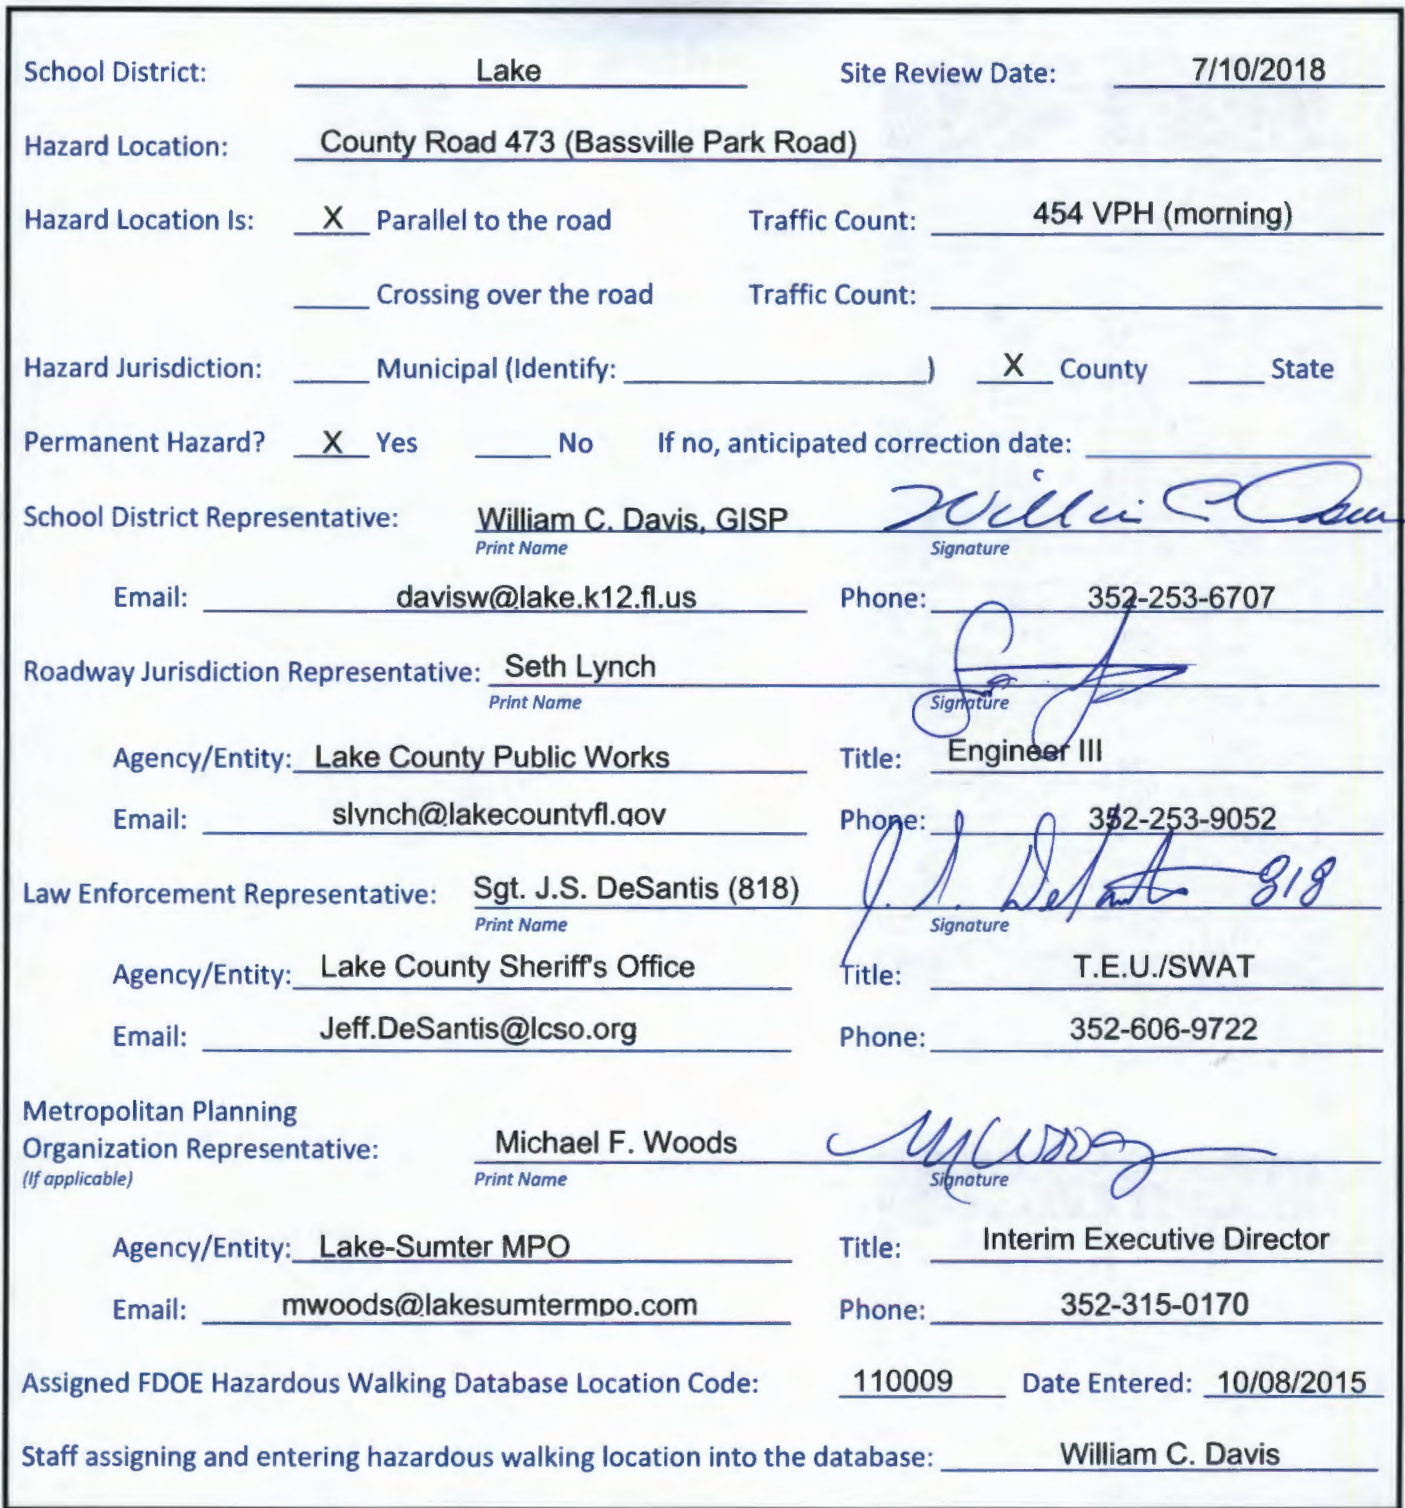 School District: Lake Site Review Date: 7/10/2018
Hazard Location: County Road 473 (Bassville Park Road)
Hazard Location Is: X Parallel to the road Traffic Count: 454 VPH (morning)
Crossing over the road Traffic Count:
Hazard Jurisdiction: Municipal (Identify: ) X County State
Permanent Hazard? X Yes No If no, anticipated correction date:
School District Representative: William C. Davis, GISP
Print Name Signature
Email: davisw@lake.k12.fl.us Phone: 352-253-6707
Roadway Jurisdiction Representative: Seth Lynch
Print Name Signature
Agency/Entity: Lake County Public Works Title: Engineer III
Email: slynch@lakecountyfl.gov Phone: 352-253-9052
Law Enforcement Representative: Sgt. J.S. DeSantis (818) J. S. DeSantis 818
Print Name Signature
Agency/Entity: Lake County Sheriff's Office Title: T.E.U./SWAT
Email: Jeff.DeSantis@lcso.org Phone: 352-606-9722
Metropolitan Planning
Organization Representative: Michael F. Woods
(If applicable) Print Name Signature
Agency/Entity: Lake-Sumter MPO Title: Interim Executive Director
Email: mwoods@lakesumtermpo.com Phone: 352-315-0170
Assigned FDOE Hazardous Walking Database Location Code: 110009 Date Entered: 10/08/2015
Staff assigning and entering hazardous walking location into the database: William C. Davis